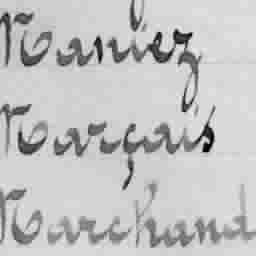 Maniez
Marçais
Marchand